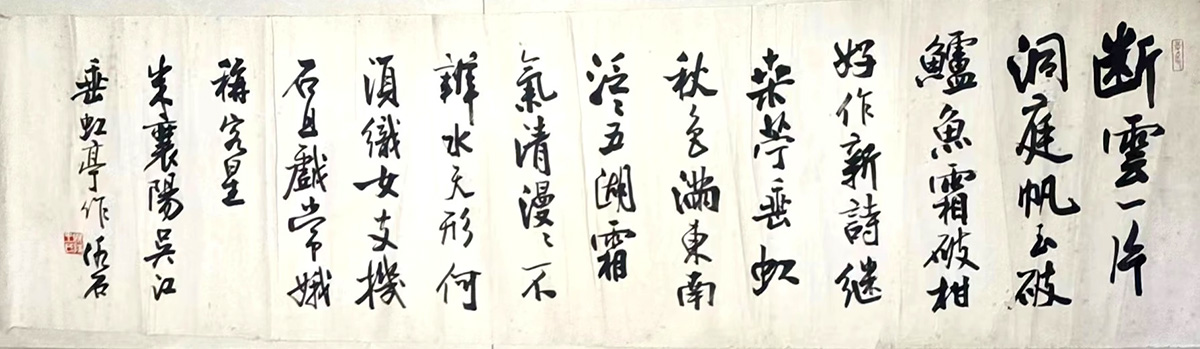 断雲一片
洞庭帆玉破
鱸魚霜破柑
好作新詩継
桑苧垂虹
秋色滿東南
泛々五湖霜
氣清漫々不
辨水天形何
須織女支機
石且戲常娥
稱客星
米襄陽吳江
垂虹亭作